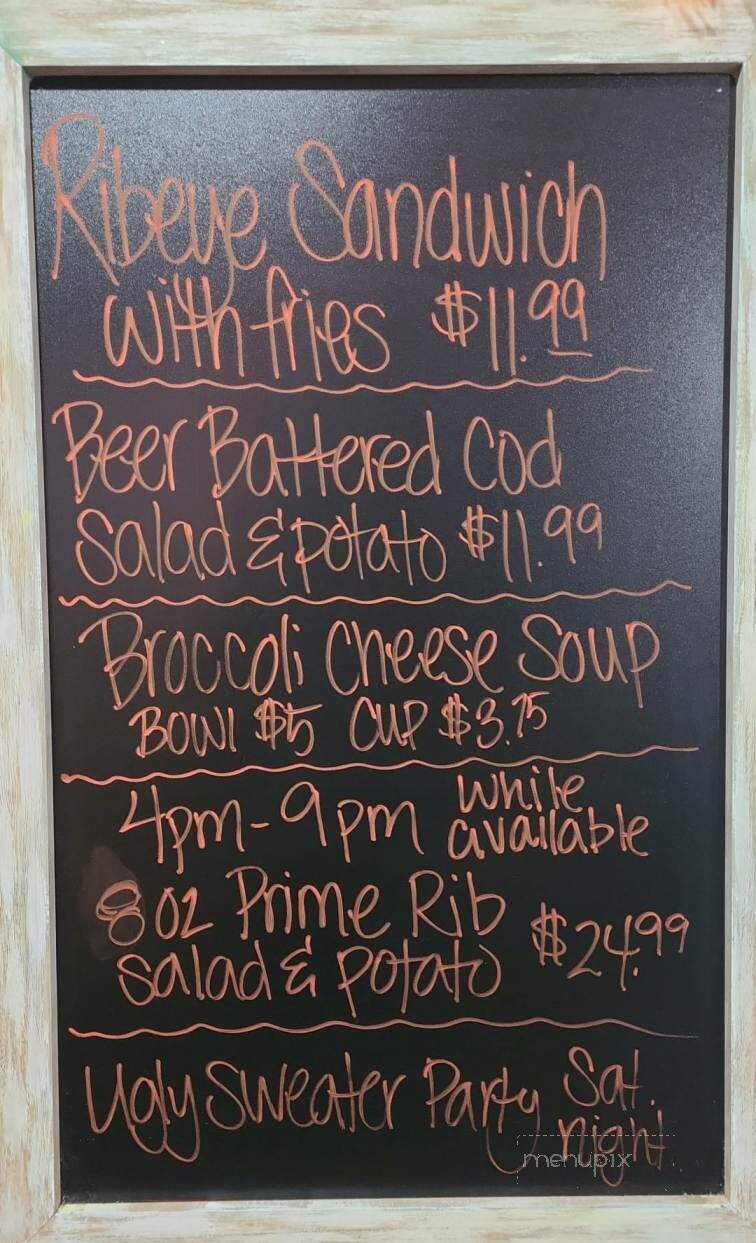 Ribeye Sandwich
with fries $11.99
Beer Battered Cod
Salad & potato $11.99
Broccoli Cheese Soup
Bowl $5 Cup $3.75
4pm-9pm while
available
8 oz Prime Rib
salad & potato $24.99
Ugly Sweater Party Sat.
night
menupix